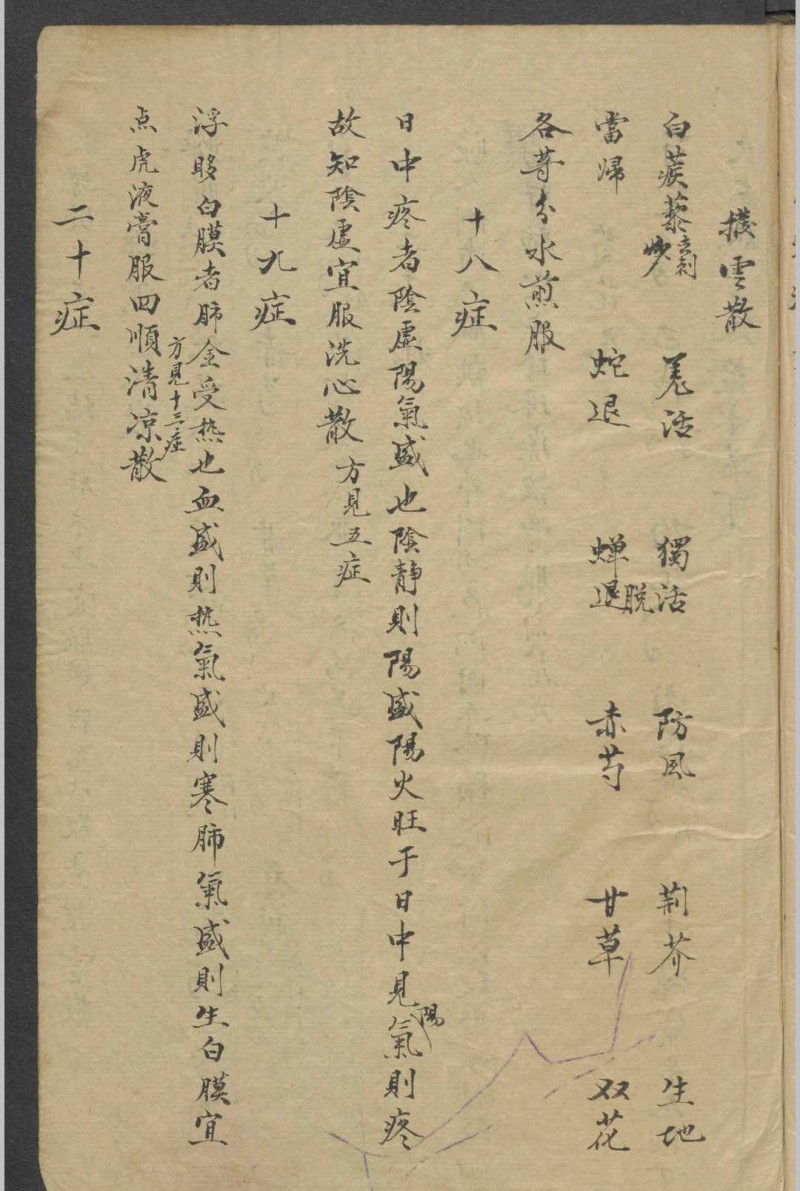 撥雲散
白蒺藜去刺炒 羌活 獨活 防風 荊芥 生地
當歸 蛇退 蟬退脫 赤芍 甘草 双花
各等分水煎服
十八症
日中疼者陰虛陽氣盛也陰靜則陽盛陽火旺于日中見陽氣則疼
故知陰虛宜服洗心散 方見五症
十九症
浮眵白膜者肺金受热也血盛則热氣盛則寒肺氣盛則生白膜宜
点虎液膏服四順清凉散 方見十三症
二十症